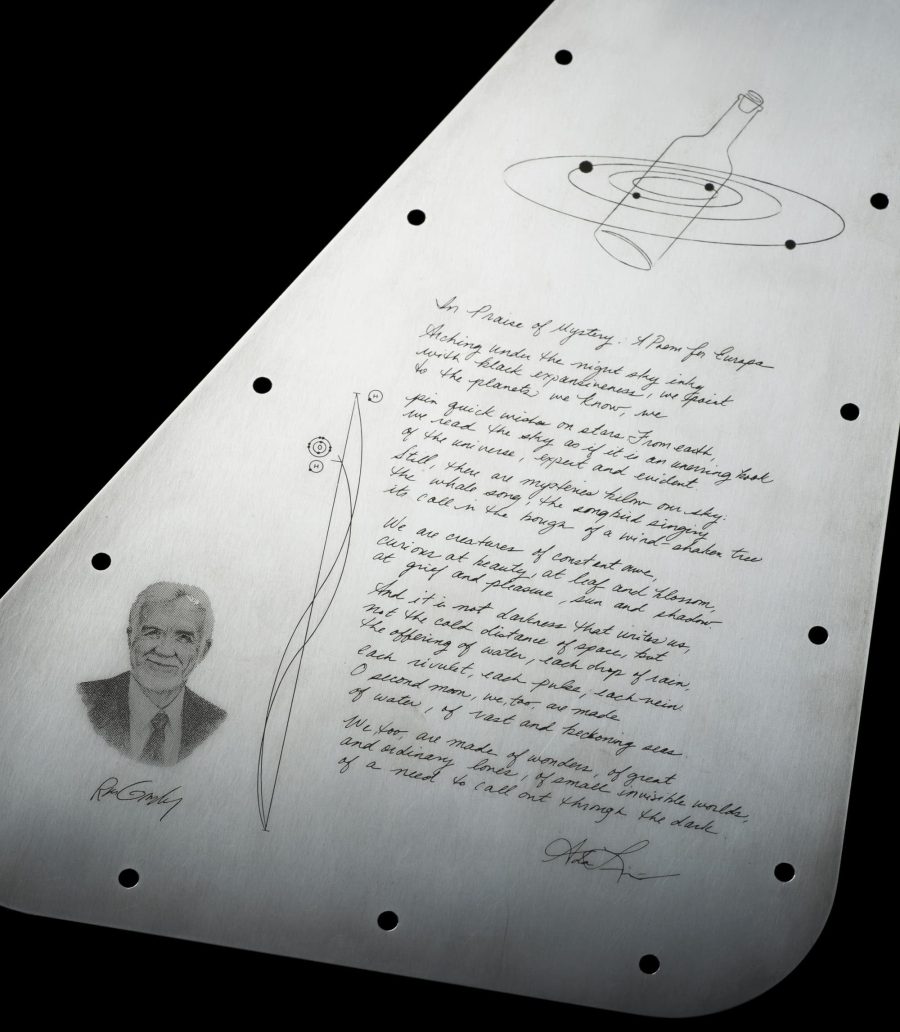 In Praise of Mystery: A Poem for Europa
Arching under the night sky inky
with black expansiveness, we point
to the planets we know, we
pin quick wishes on stars. From earth,
we read the sky as if it is an unerring book
of the universe, expert and evident.
Still, there are mysteries below our sky:
the whale song, the songbird singing
its call in the bough of a wind-shaken tree
We are creatures of constant awe,
curious at beauty, at leaf and blossom,
at grief and pleasure, sun and shadow.
And it is not darkness that unites us,
not the cold distance of space, but
the offering of water, each drop of rain,
each rivulet, each pulse, each vein.
O second moon, we, too, are made
of water, of vast and beckoning seas.
We, too, are made of wonders, of great
and ordinary loves, of small invisible worlds,
of a need to call out through the dark.
H
O
H
Ada